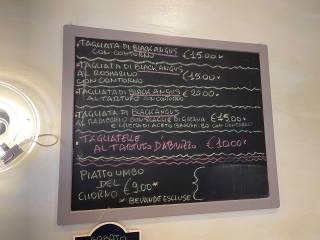 • TAGLIATA DI BLACK ANGUS
CON CONTORNO €15.00*
• TAGLIATA DI BLACK ANGUS
AL ROSMARINO €15.00*
CON CONTORNO
• TAGLIATA DI BLACK ANGUS €20.00*
AL TARTUFO CON CONTORNO
• TAGLIATA DI BLACK ANGUS
AL RADICCHIO CON SCAGLIE DI GRANA €15.00*
E CREMA DI ACETO BALSAMICO CON CONTORNO
• TAGLIATELLE
AL TARTUFO D'ABRUZZO €10.00*
PIATTO UNICO
DEL €9.00*
GIORNO * BEVANDE ESCLUSE
SABATO